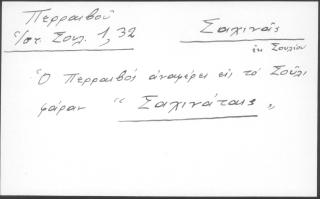 Περραιβοῦ
Ἱστ. Σουλ. 1, 32
Σαχινᾶς
ἐκ Σουλίου
Ὁ Περραιβός ἀναφέρει εἰς τό Σοῦλι
φάραν "Σαχινάταις"